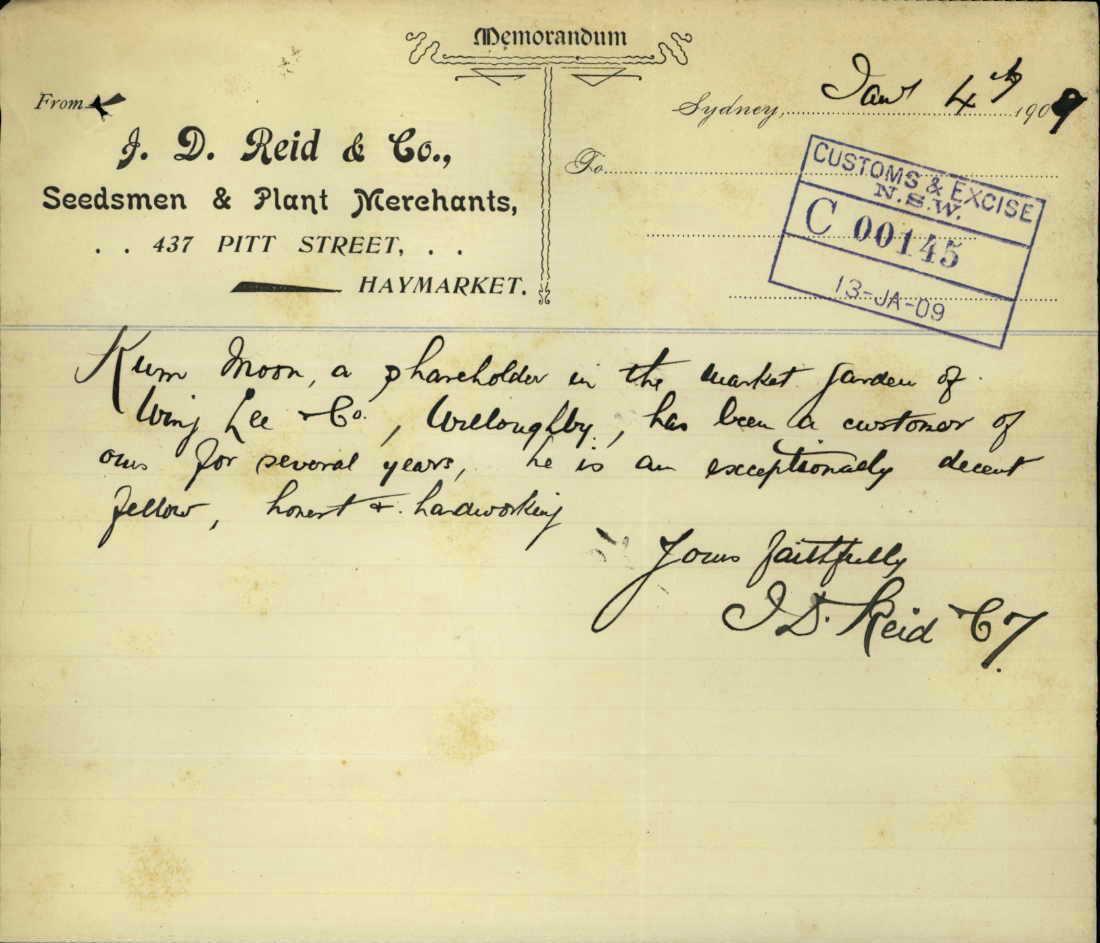 Memorandum
From
J. D. Reid & Co.,
Seedsmen & Plant Merchants,
. . 437 PITT STREET, . .
HAYMARKET.
Sydney, Jany 4th 1909
To
CUSTOMS & EXCISE
N.S.W.
C 00145
13-JA-09
Kum Moon, a shareholder in the market garden of
Wing Lee & Co., Willoughby, has been a customer of
ours for several years, he is an exceptionally decent
fellow, honest & hardworking
Yours faithfully
J D. Reid & Co.